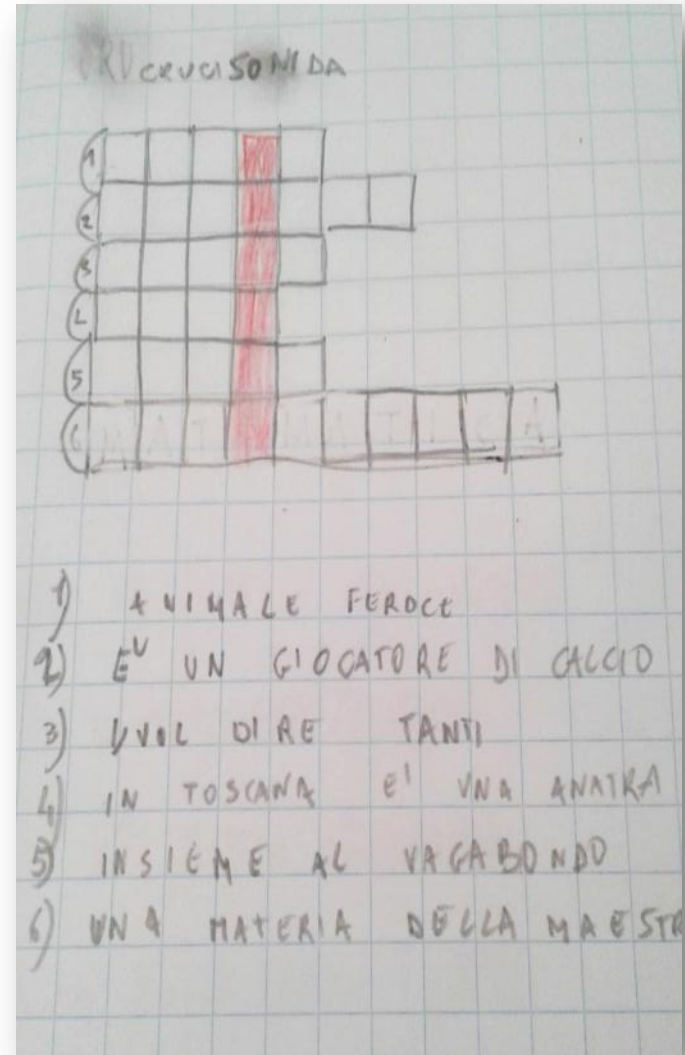 CRUCISONIDA
1
2
3
4
5
6 M A T M A T I C A
1) ANIMALE FEROCE
2) E' UN GIOCATORE DI CALCIO
3) VUOL DIRE TANTI
4) IN TOSCANA E' UNA ANATRA
5) INSIEME AL VAGABONDO
6) UNA MATERIA DELLA MAESTR